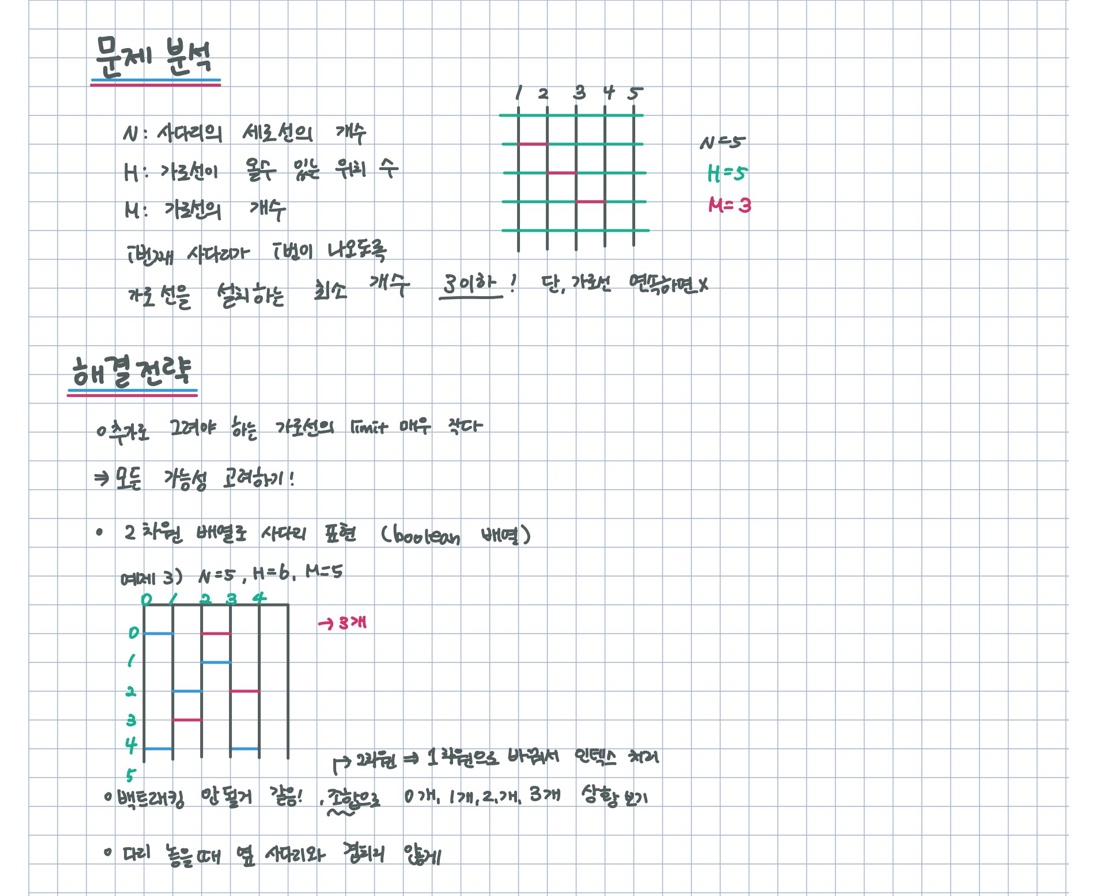 문제 분석
1 2 3 4 5
N: 사다리의 세로선의 개수
N=5
H: 가로선이 올수 있는 위치 수
H=5
M: 가로선의 개수
M=3
i번째 사다리가 i번이 나오도록
가로선을 설치하는 최소 개수 3이하! 단, 가로선 연속하면 x
해결전략
추가로 그려야 하는 가로선의 limit 매우 작다
⇒ 모든 가능성 고려하기!
• 2차원 배열로 사다리 표현 (boolean 배열)
예제 3) N=5, H=6, M=5
0 1 2 3 4
→ 3개
0
1
2
3
4
5
→ 2차원 ⇒ 1차원으로 바꿔서 인덱스 처리
백트래킹 안될거 같음!, 조합으로 0개, 1개, 2개, 3개 상황 보기
다리 놓을때 옆 사다리와 겹치지 않게